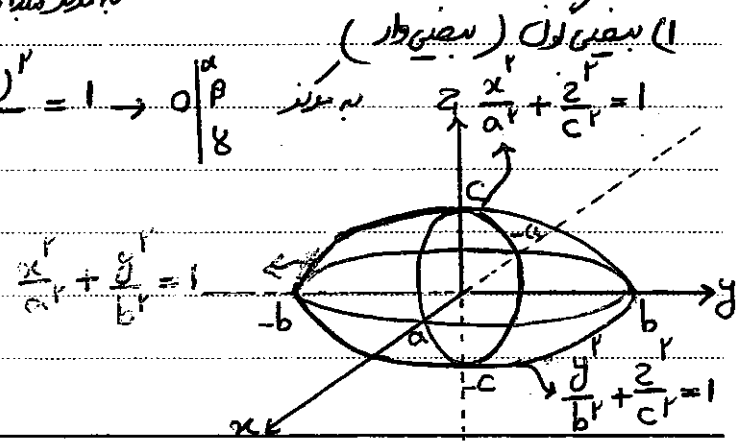 ۱) بیضی گون (بیضی وار)
)² = 1 → O | α β γ به مرکز
x²/a² + z²/c² = 1
z
c
-a
x²/a² + y²/b² = 1
-b
b
y
a
-c
y²/b² + z²/c² = 1
x